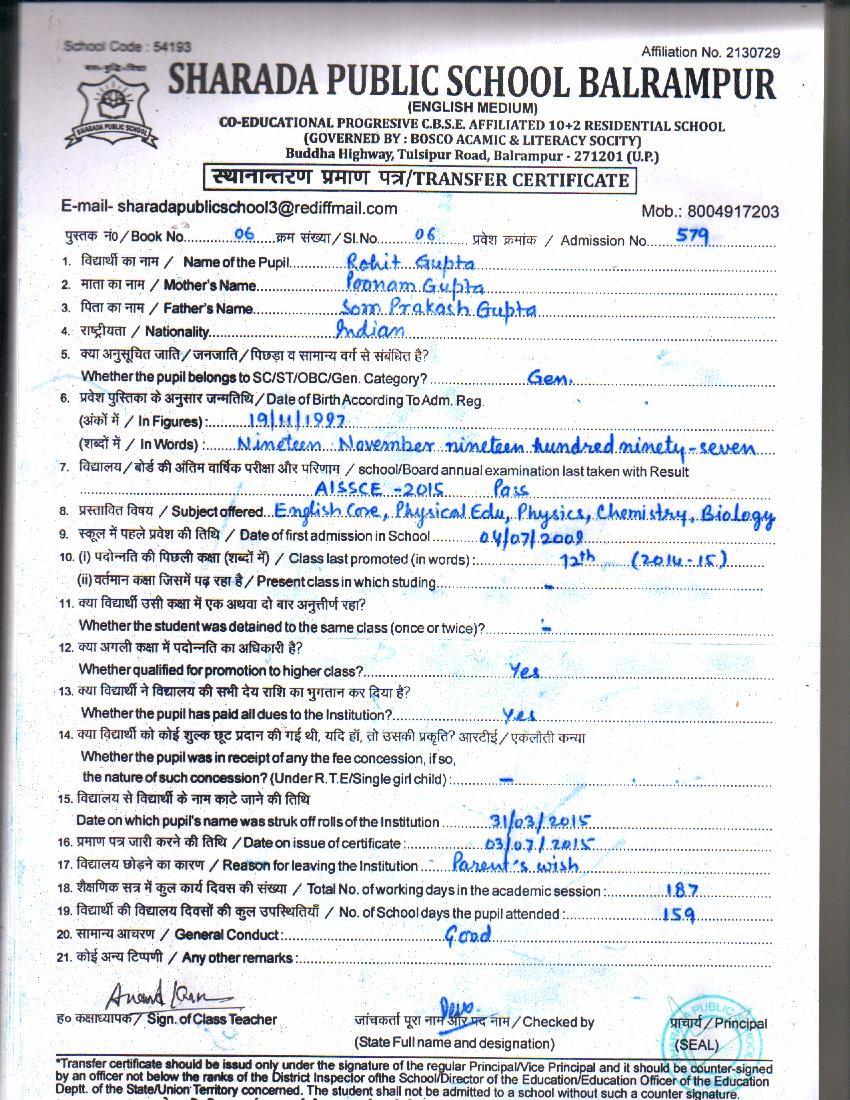 School Code : 54193
Affiliation No. 2130729
SHARADA PUBLIC SCHOOL BALRAMPUR
SHARADA PUBLIC SCHOOL
(ENGLISH MEDIUM)
CO-EDUCATIONAL PROGRESIVE C.B.S.E. AFFILIATED 10+2 RESIDENTIAL SCHOOL
(GOVERNED BY : BOSCO ACAMIC & LITERACY SOCITY)
Buddha Highway, Tulsipur Road, Balrampur - 271201 (U.P.)
स्थानान्तरण प्रमाण पत्र/TRANSFER CERTIFICATE
E-mail- sharadapublicschool3@rediffmail.com Mob.: 8004917203
पुस्तक नं0/Book No. 06 क्रम संख्या/Sl.No. 06 प्रवेश क्रमांक / Admission No. 579
1. विद्यार्थी का नाम / Name of the Pupil Rohit Gupta
2. माता का नाम / Mother's Name Poonam Gupta
3. पिता का नाम / Father's Name Som Prakash Gupta
4. राष्ट्रीयता / Nationality Indian
5. क्या अनुसूचित जाति/जनजाति/पिछड़ा व सामान्य वर्ग से संबंधित है?
Whether the pupil belongs to SC/ST/OBC/Gen. Category? Gen.
6. प्रवेश पुस्तिका के अनुसार जन्मतिथि/Date of Birth According To Adm. Reg.
(अंकों में / In Figures) : 19/11/1997
(शब्दों में / In Words) : Nineteen November nineteen hundred ninety-seven
7. विद्यालय/बोर्ड की अंतिम वार्षिक परीक्षा और परिणाम / school/Board annual examination last taken with Result
AISSCE -2015 Pass
8. प्रस्तावित विषय / Subject offered English Core, Physical Edu, Physics, Chemistry, Biology
9. स्कूल में पहले प्रवेश की तिथि / Date of first admission in School 04/07/2008
10. (i) पदोन्नति की पिछली कक्षा (शब्दों में) / Class last promoted (in words) : 12th (2014-15)
(ii) वर्तमान कक्षा जिसमें पढ़ रहा है / Present class in which studing -
11. क्या विद्यार्थी उसी कक्षा में एक अथवा दो बार अनुत्तीर्ण रहा?
Whether the student was detained to the same class (once or twice)? -
12. क्या अगली कक्षा में पदोन्नति का अधिकारी है?
Whether qualified for promotion to higher class? Yes
13. क्या विद्यार्थी ने विद्यालय की सभी देय राशि का भुगतान कर दिया है?
Whether the pupil has paid all dues to the Institution? Yes
14. क्या विद्यार्थी को कोई शुल्क छूट प्रदान की गई थी, यदि हाँ, तो उसकी प्रकृति? आरटीई / एकलौती कन्या
Whether the pupil was in receipt of any the fee concession, if so,
the nature of such concession? (Under R.T.E/Single girl child) : -
15. विद्यालय से विद्यार्थी के नाम काटे जाने की तिथि
Date on which pupil's name was struk off rolls of the Institution 31/03/2015
16. प्रमाण पत्र जारी करने की तिथि / Date on issue of certificate : 03/07/2015
17. विद्यालय छोड़ने का कारण / Reason for leaving the Institution Parent's wish
18. शैक्षणिक सत्र में कुल कार्य दिवस की संख्या / Total No. of working days in the academic session : 187
19. विद्यार्थी की विद्यालय दिवसों की कुल उपस्थितियाँ / No. of School days the pupil attended : 159
20. सामान्य आचरण / General Conduct: Good
21. कोई अन्य टिप्पणी / Any other remarks :
ह० कक्षाध्यापक/ Sign. of Class Teacher जांचकर्ता पूरा नाम और पद नाम/Checked by प्राचार्य/Principal
(State Full name and designation) (SEAL)
*Transfer certificate should be issued only under the signature of the regular Principal/Vice Principal and it should be counter-signed
by an officer not below the ranks of the District Inspector ofthe School/Director of the Education/Education Officer of the Education
Deptt. of the State/Union Territory concerned. The student shall not be admitted to a school without such a counter signature.